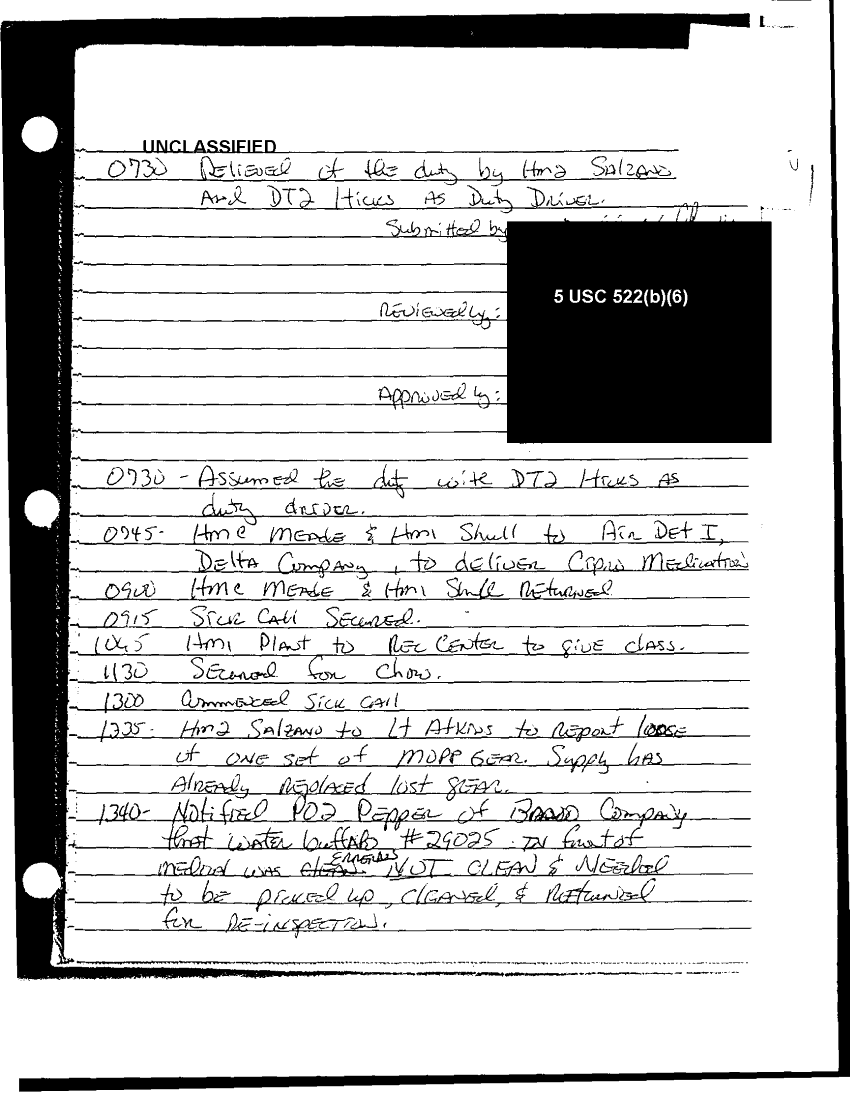 UNCLASSIFIED
0730 Relieved of the duty by HM2 Salzano
And DT2 Hicks As Duty Driver.
Submitted by
5 USC 522(b)(6)
Reviewed by:
Approved by:
0730 - Assumed the duty with DT2 Hicks AS
duty driver.
0745- HMC Meade & HM1 Shull to Air Det I,
Delta Company, to deliver Cipro Medication
0900 HMC Meade & HM1 Shull Returned
0915 Sick Call Secured.
1045 HM1 Plant to Rec Center to give class.
1130 Secured for Chow.
1300 Commenced Sick Call
1335- HM2 Salzano to Lt Atkins to report loose
of one set of MOPP Gear. Supply has
Already replaced lost gear.
1340- Notified PO2 Pepper of Company
that water buffalo #29025 in front of
medical was NOT CLEAN & Needed
to be picked up, cleaned, & Returned
for re-inspection.